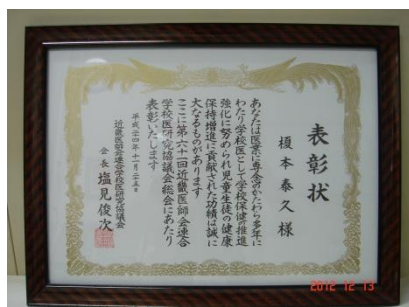 表彰状
榎本泰久 様
あなたは医業に専念のかたわら多年に
わたり学校医として学校保健の推進
強化に努められ児童生徒の健康
保持増進に貢献された功績は誠に
大なるものがあります
ここに第六十一回近畿医師会連合
学校医研究協議会総会にあたり
表彰いたします
平成二十四年十一月二十五日
近畿医師会連合学校医研究協議会
会長 塩見俊次
2012 12 13